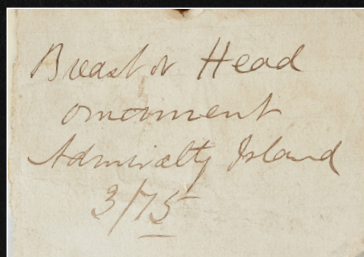 Breast or Head
ornament
Admiralty Island
3/75